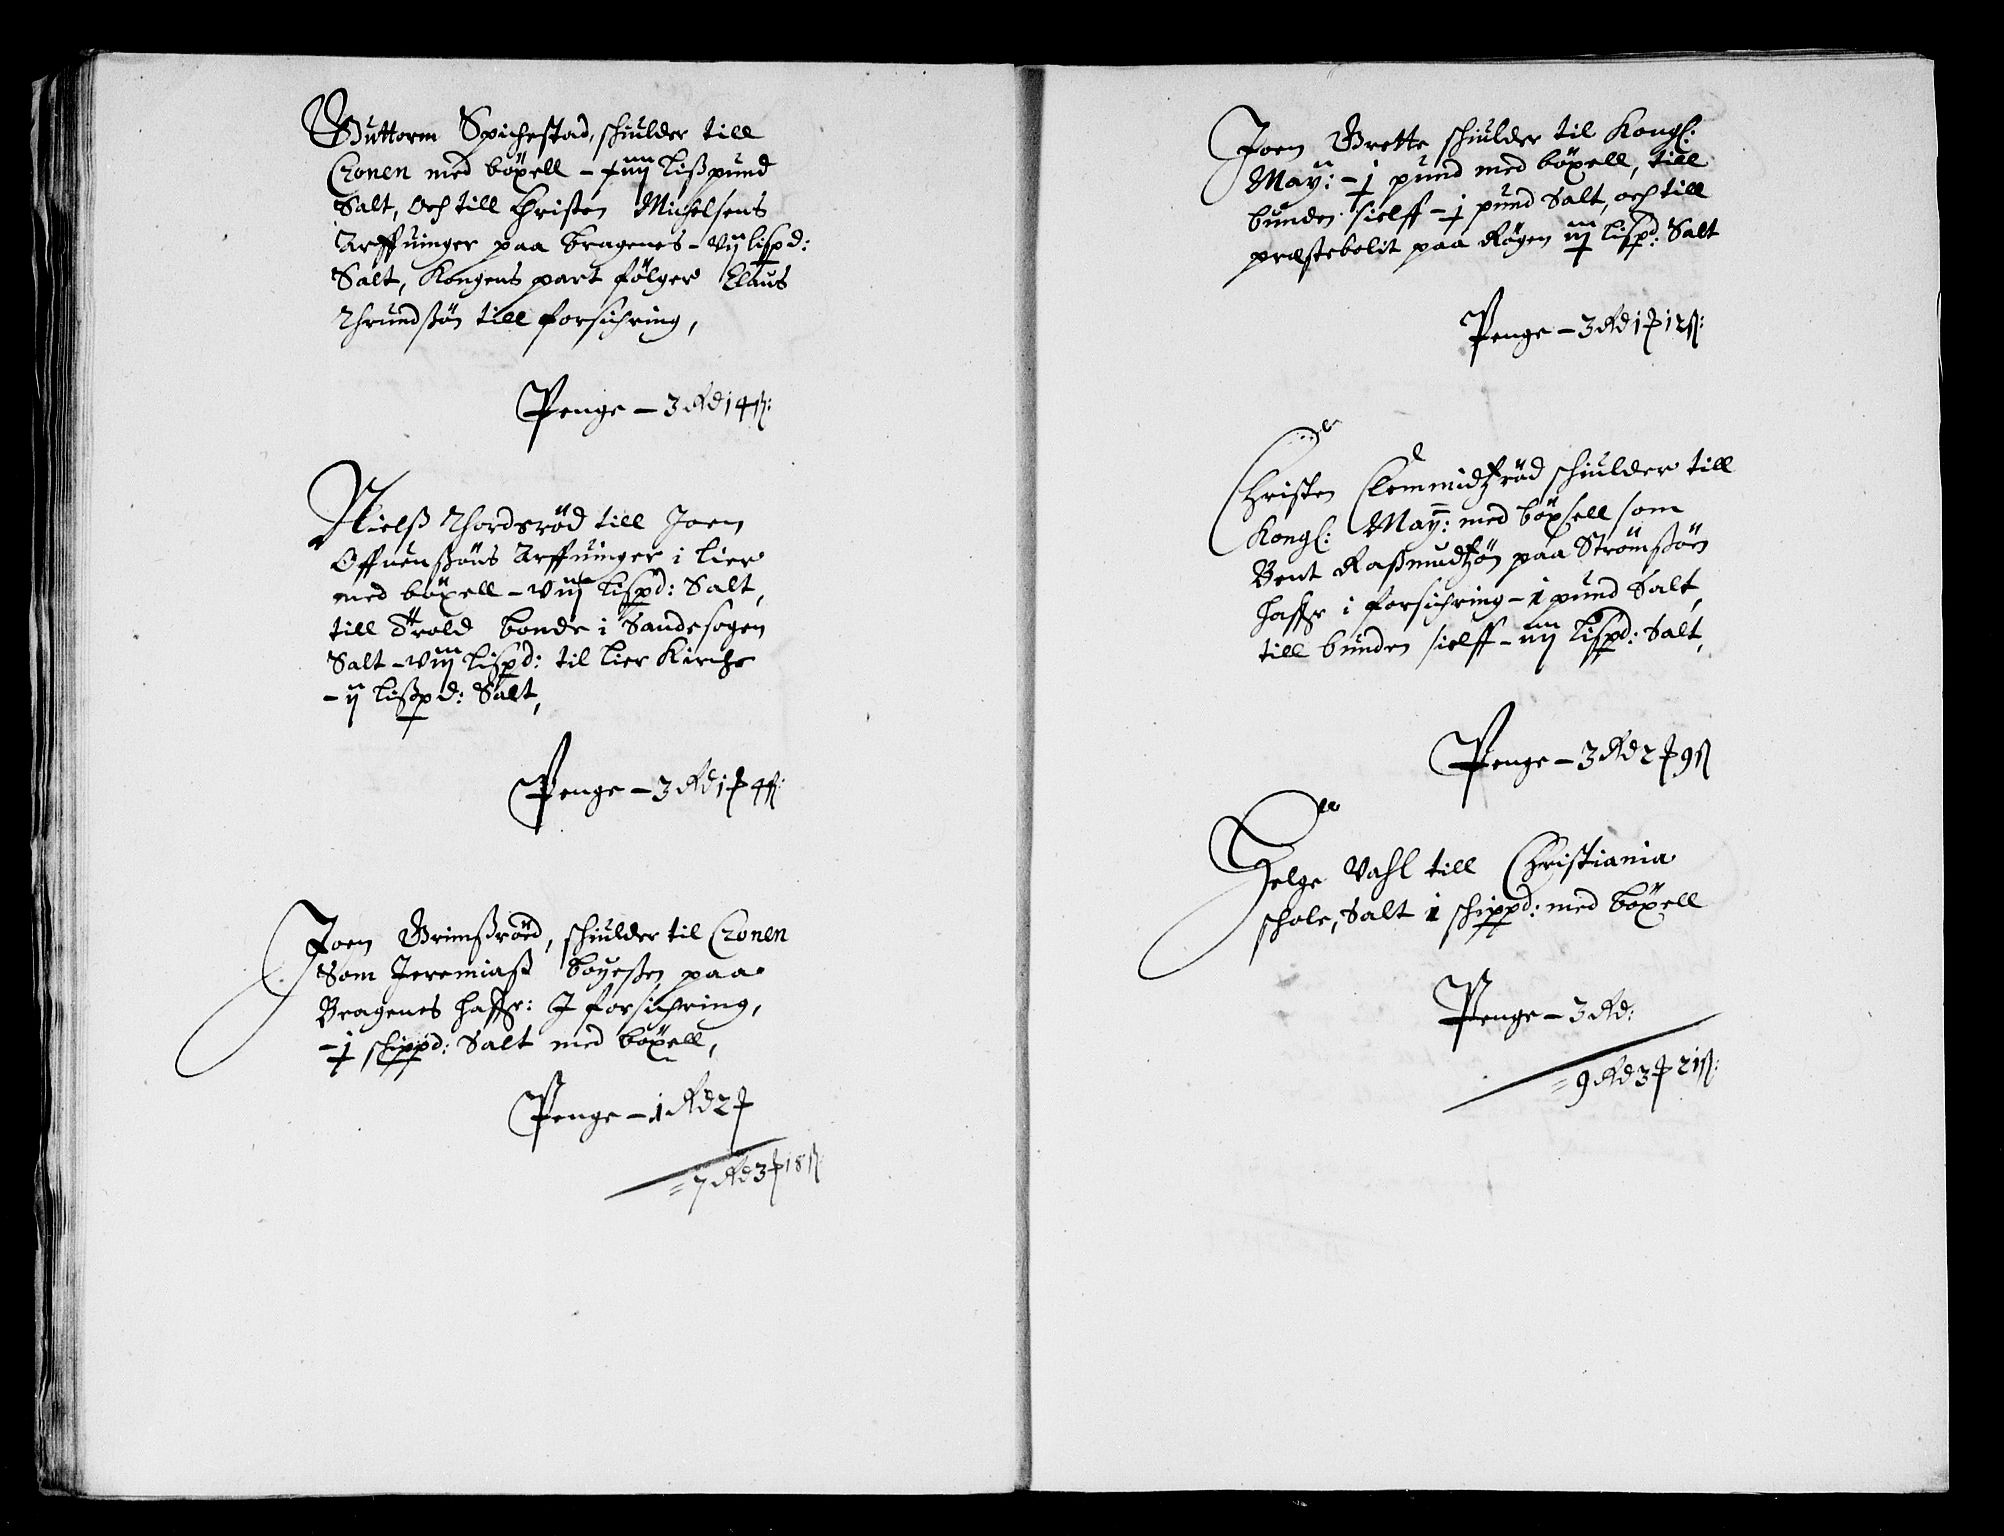 Guttorm Spichestad, schiulder till
Cronen med böxell - iiij Lißpund
Salt, och till Christen Michelsens
Arffuinger paa Bragenes - vij lispd:
Salt, Kongens part fölger Claus
Thrundßön till forsichring,
Penge - 3 Rd 14 ß:
Nielß Thordsröd till Joen
Offuenßöns Arffuinger i Lier
med böxell - viij Lispd: Salt,
till Trold bonde i Sandesogen
Salt - viij Lispd: til Lier Kirche
- ij Lißpd: Salt,
Penge - 3 Rd 1 ƒ 4 ß:
Joen Grimßröed, schiulder til Cronen
Som Jeremiaß boyeßen paa
Bragenes haffr: I forsichring,
- j schippd: Salt med böxell,
Penge - 1 Rd 2 ƒ
= 7 Rd 3 ƒ 18 ß:
Joen Grette schiulder til Kongl:
May: - j pund med böxell, till
bunden sielff - j pund Salt, och till
præstebolit paa Rögen iij Lispd: Salt
Penge - 3 Rd 1 ƒ 12 ß:
Christen Clemmidtzröd schiulder till
Kongl: May: med böxsell som
Bent Raßmudtzön paa Strömßöen
haffr i forsichring - 1 pund Salt,
till bunden sielff - iiij Lispd: Salt,
Penge - 3 Rd 2 ƒ 9 ß
Helge Vahl till Christiania
schole, Salt 1 schippd: med böxell
Penge - 3 Rd:
= 9 Rd 3 ƒ 21 ß: